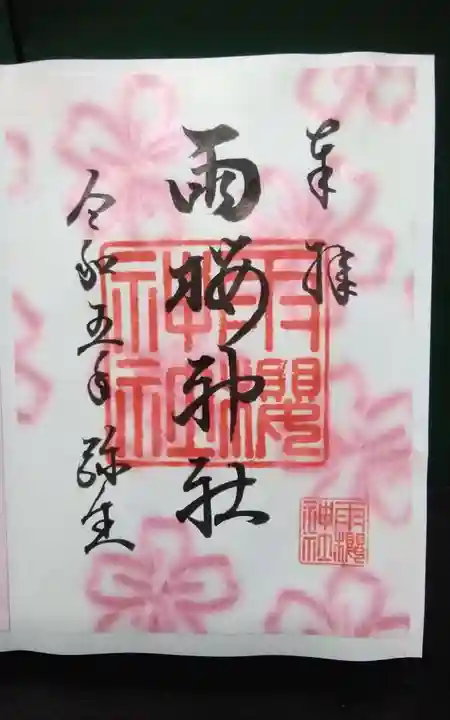 奉拝
雨桜神社
令和五年弥生
雨櫻神社
雨櫻神社